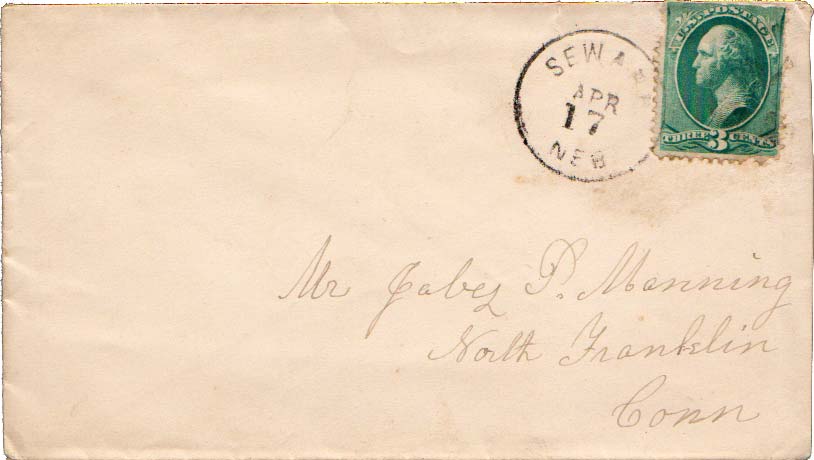 U.S. POSTAGE
THREE 3 CENTS
SEWARD
APR
17
NEB
Mr Jabez P. Manning
North Franklin
Conn